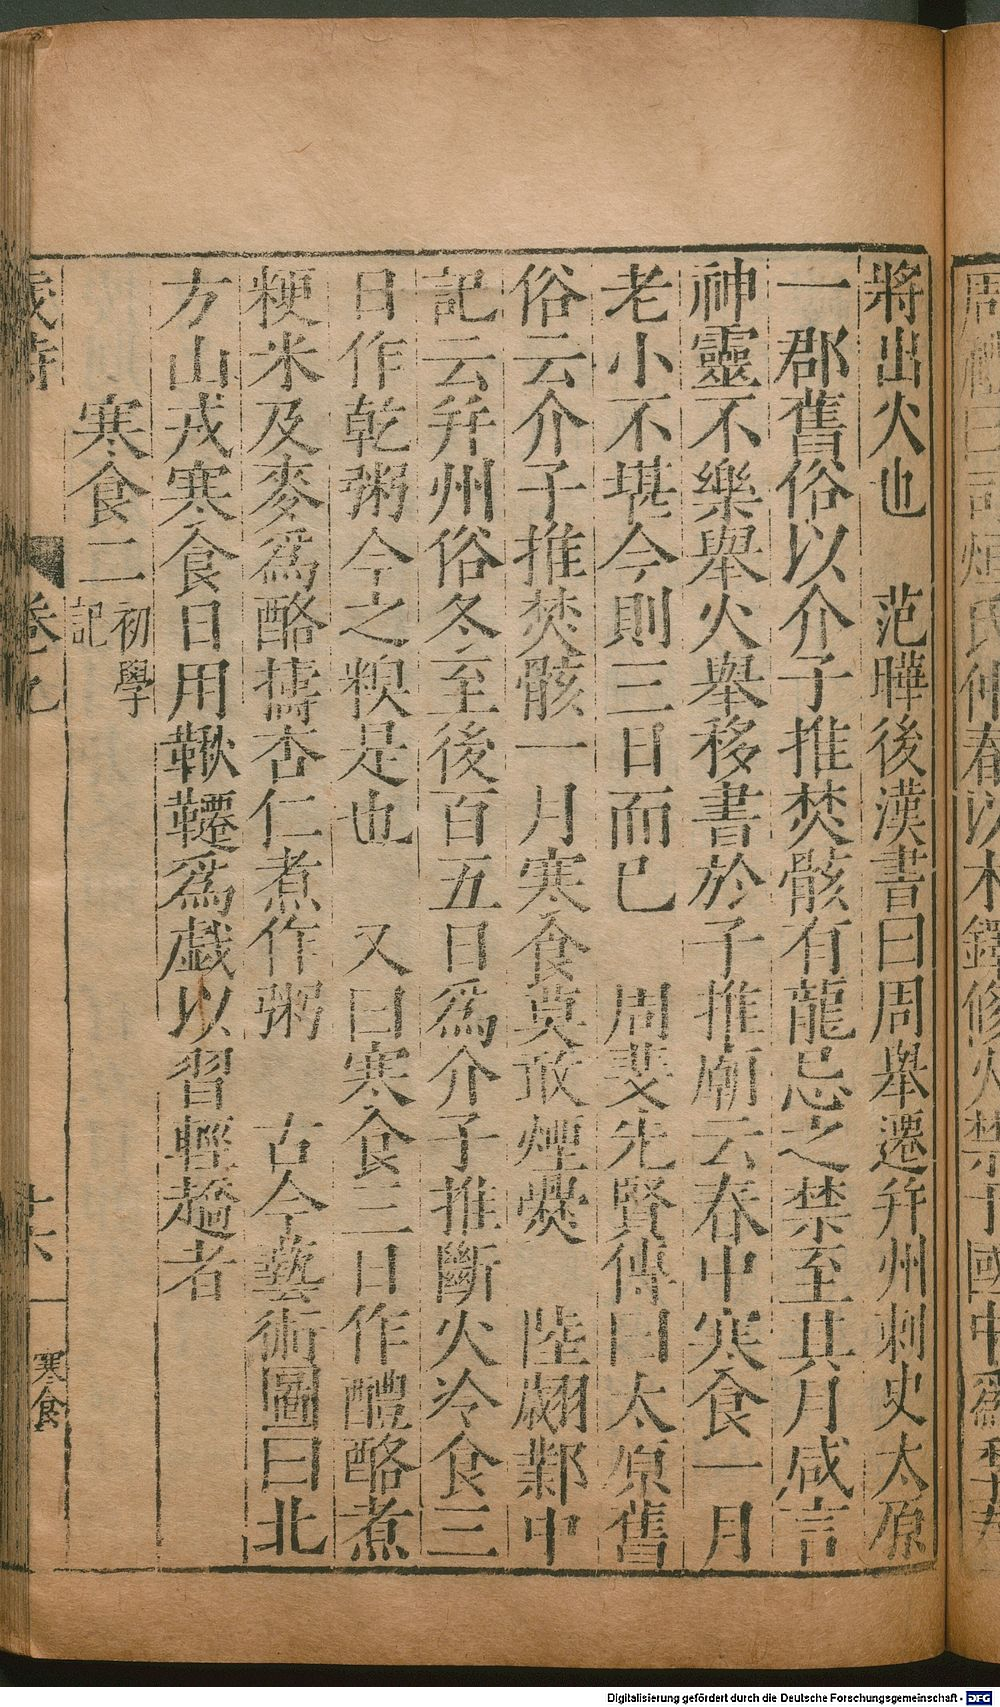 將出火也　范曄後漢書曰周舉遷幷州刺史太原
一郡舊俗以介子推焚骸有龍忌之禁至其月咸言
神靈不樂舉火舉移書於子推廟云春中寒食一月
老小不堪今則三日而已　周斐先賢傳曰太原舊
俗云介子推焚骸一月寒食莫敢煙爨　陸翽鄴中
記云幷州俗冬至後百五日爲介子推斷火冷食三
日作乾粥今之糗是也　又曰寒食三日作醴酪煮
粳米及麥爲酪擣杏仁煮作粥　古今藝術圖曰北
方山戎寒食日用鞦韆爲戯以習輕趫者
寒食二 初學記
歲時 卷之 十六 寒食
Digitalisierung gefördert durch die Deutsche Forschungsgemeinschaft - DFG